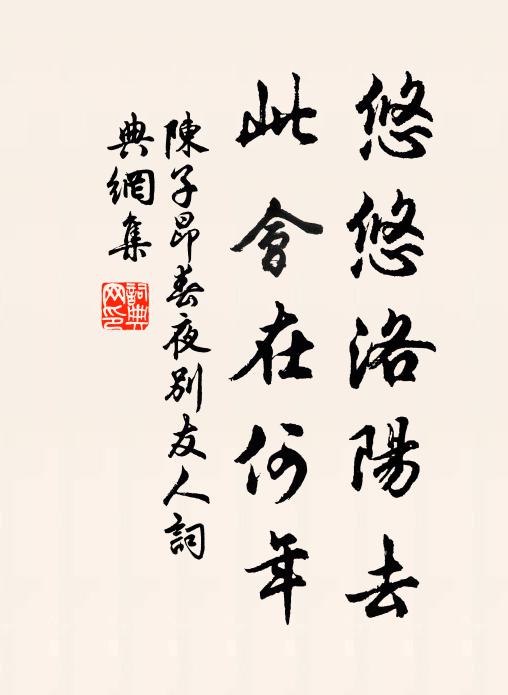 悠悠洛陽去
此會在何年
陳子昂春夜別友人詞
典網集
詞典網印